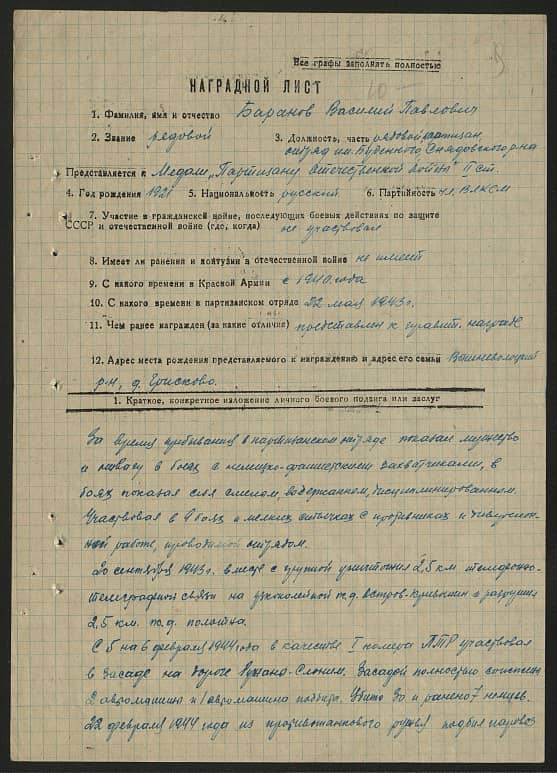 Все графы заполнять полностью
НАГРАДНОЙ ЛИСТ
1. Фамилия, имя и отчество Баранов Василий Павлович
2. Звание рядовой 3. Должность, часть рядовой партизан,
отряд им. Буденного, Снядовского р-на
Представляется к Медали „Партизану отечественной войны" II ст.
4. Год рождения 1921 5. Национальность русский 6. Партийность чл. ВЛКСМ
7. Участие в гражданской войне, последующих боевых действиях по защите
СССР и отечественной войне (где, когда) не участвовал
8. Имеет ли ранения и контузии в отечественной войне не имеет
9. С какого времени в Красной Армии с 1940 года
10. С какого времени в партизанском отряде 22 мая 1943 г.
11. Чем ранее награжден (за какие отличия) представлен к правит. награде
12. Адрес места рождения представляемого к награждению и адрес его семьи Вышневолоцкий
р-н, д.
1. Краткое, конкретное изложение личного боевого подвига или заслуг
За время пребывания в партизанском отряде показал мужество
и отвагу в боях с немецко-фашистскими захватчиками, в
боях показал себя смелым, выдержанным, дисциплинированным.
Участвовал в 9 боях и мелких стычках с противником и диверсион-
ной работе, проводимой отрядом.
20 сентября 1943 г. вместе с группой уничтожил 2,5 км телефонно-
телеграфной связи на узкоколейной ж.д. и разрушил
2,5 км. ж.д. полотна.
С 5 на 6 февраля 1944 года в качестве I номера ПТР участвовал
в засаде на дороге Ружано-Слоним. Засадой полностью сожжены
2 автомашины и 1 автомашина подбита. Убито 30 и ранено 7 немцев.
22 февраля 1944 года из противотанкового ружья подбил паровоз